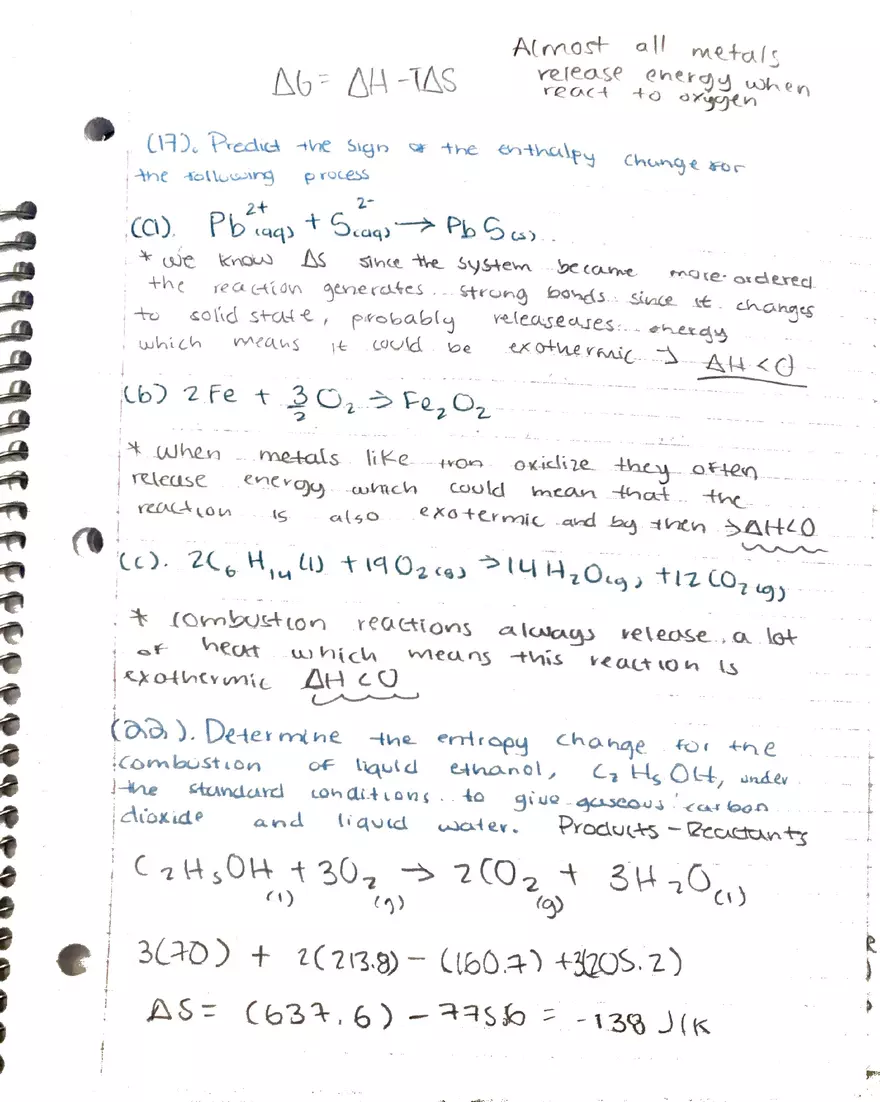 Almost all metals
release energy when
react to oxygen
ΔG = ΔH - TΔS
(17). Predict the sign of the enthalpy change for
the following process
(a). Pb²⁺(aq) + S²⁻(aq) → PbS(s)
* we know ΔS since the system became more ordered
the reaction generates strong bonds since it changes
to solid state, probably releaseases energy
which means it could be exothermic → ΔH<0
(b) 2Fe + 3/2 O₂ → Fe₂O₂
* when metals like iron oxidize they often
release energy which could mean that the
reaction is also exotermic and by then → ΔH<0
(c). 2C₆H₁₄(l) + 19O₂(g) → 14H₂O(g) + 12CO₂(g)
* combustion reactions always release a lot
of heat which means this reaction is
exothermic ΔH<0
(22). Determine the entropy change for the
combustion of liquid ethanol, C₂H₅OH, under
the standard conditions to give gaseous carbon
dioxide and liquid water. Products - Reactants
C₂H₅OH(l) + 3O₂(g) → 2CO₂(g) + 3H₂O(l)
3(70) + 2(213.8) - (160.7) + 3(205.2)
ΔS = (637.6) - = -138 J/K